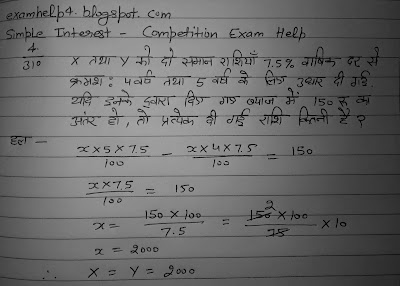 examhelp4.blogspot.com
Simple Interest - Competition Exam Help
4
उ1० X तथा Y को दो समान राशियाँ 7.5% वार्षिक दर से
क्रमश: 4 वर्ष तथा 5 वर्ष के लिए उधार दी गई.
यदि इनके द्वारा दिए गए ब्याज में 150 रू का
अंतर हो, तो प्रत्येक दी गई राशि कितनी है ?
हल -
x×5×7.5/100 - x×4×7.5/100 = 150
x×7.5/100 = 150
x = 150×100/7.5 = 150×100/75 ×10
2
x = 2000
∴ X = Y = 2000